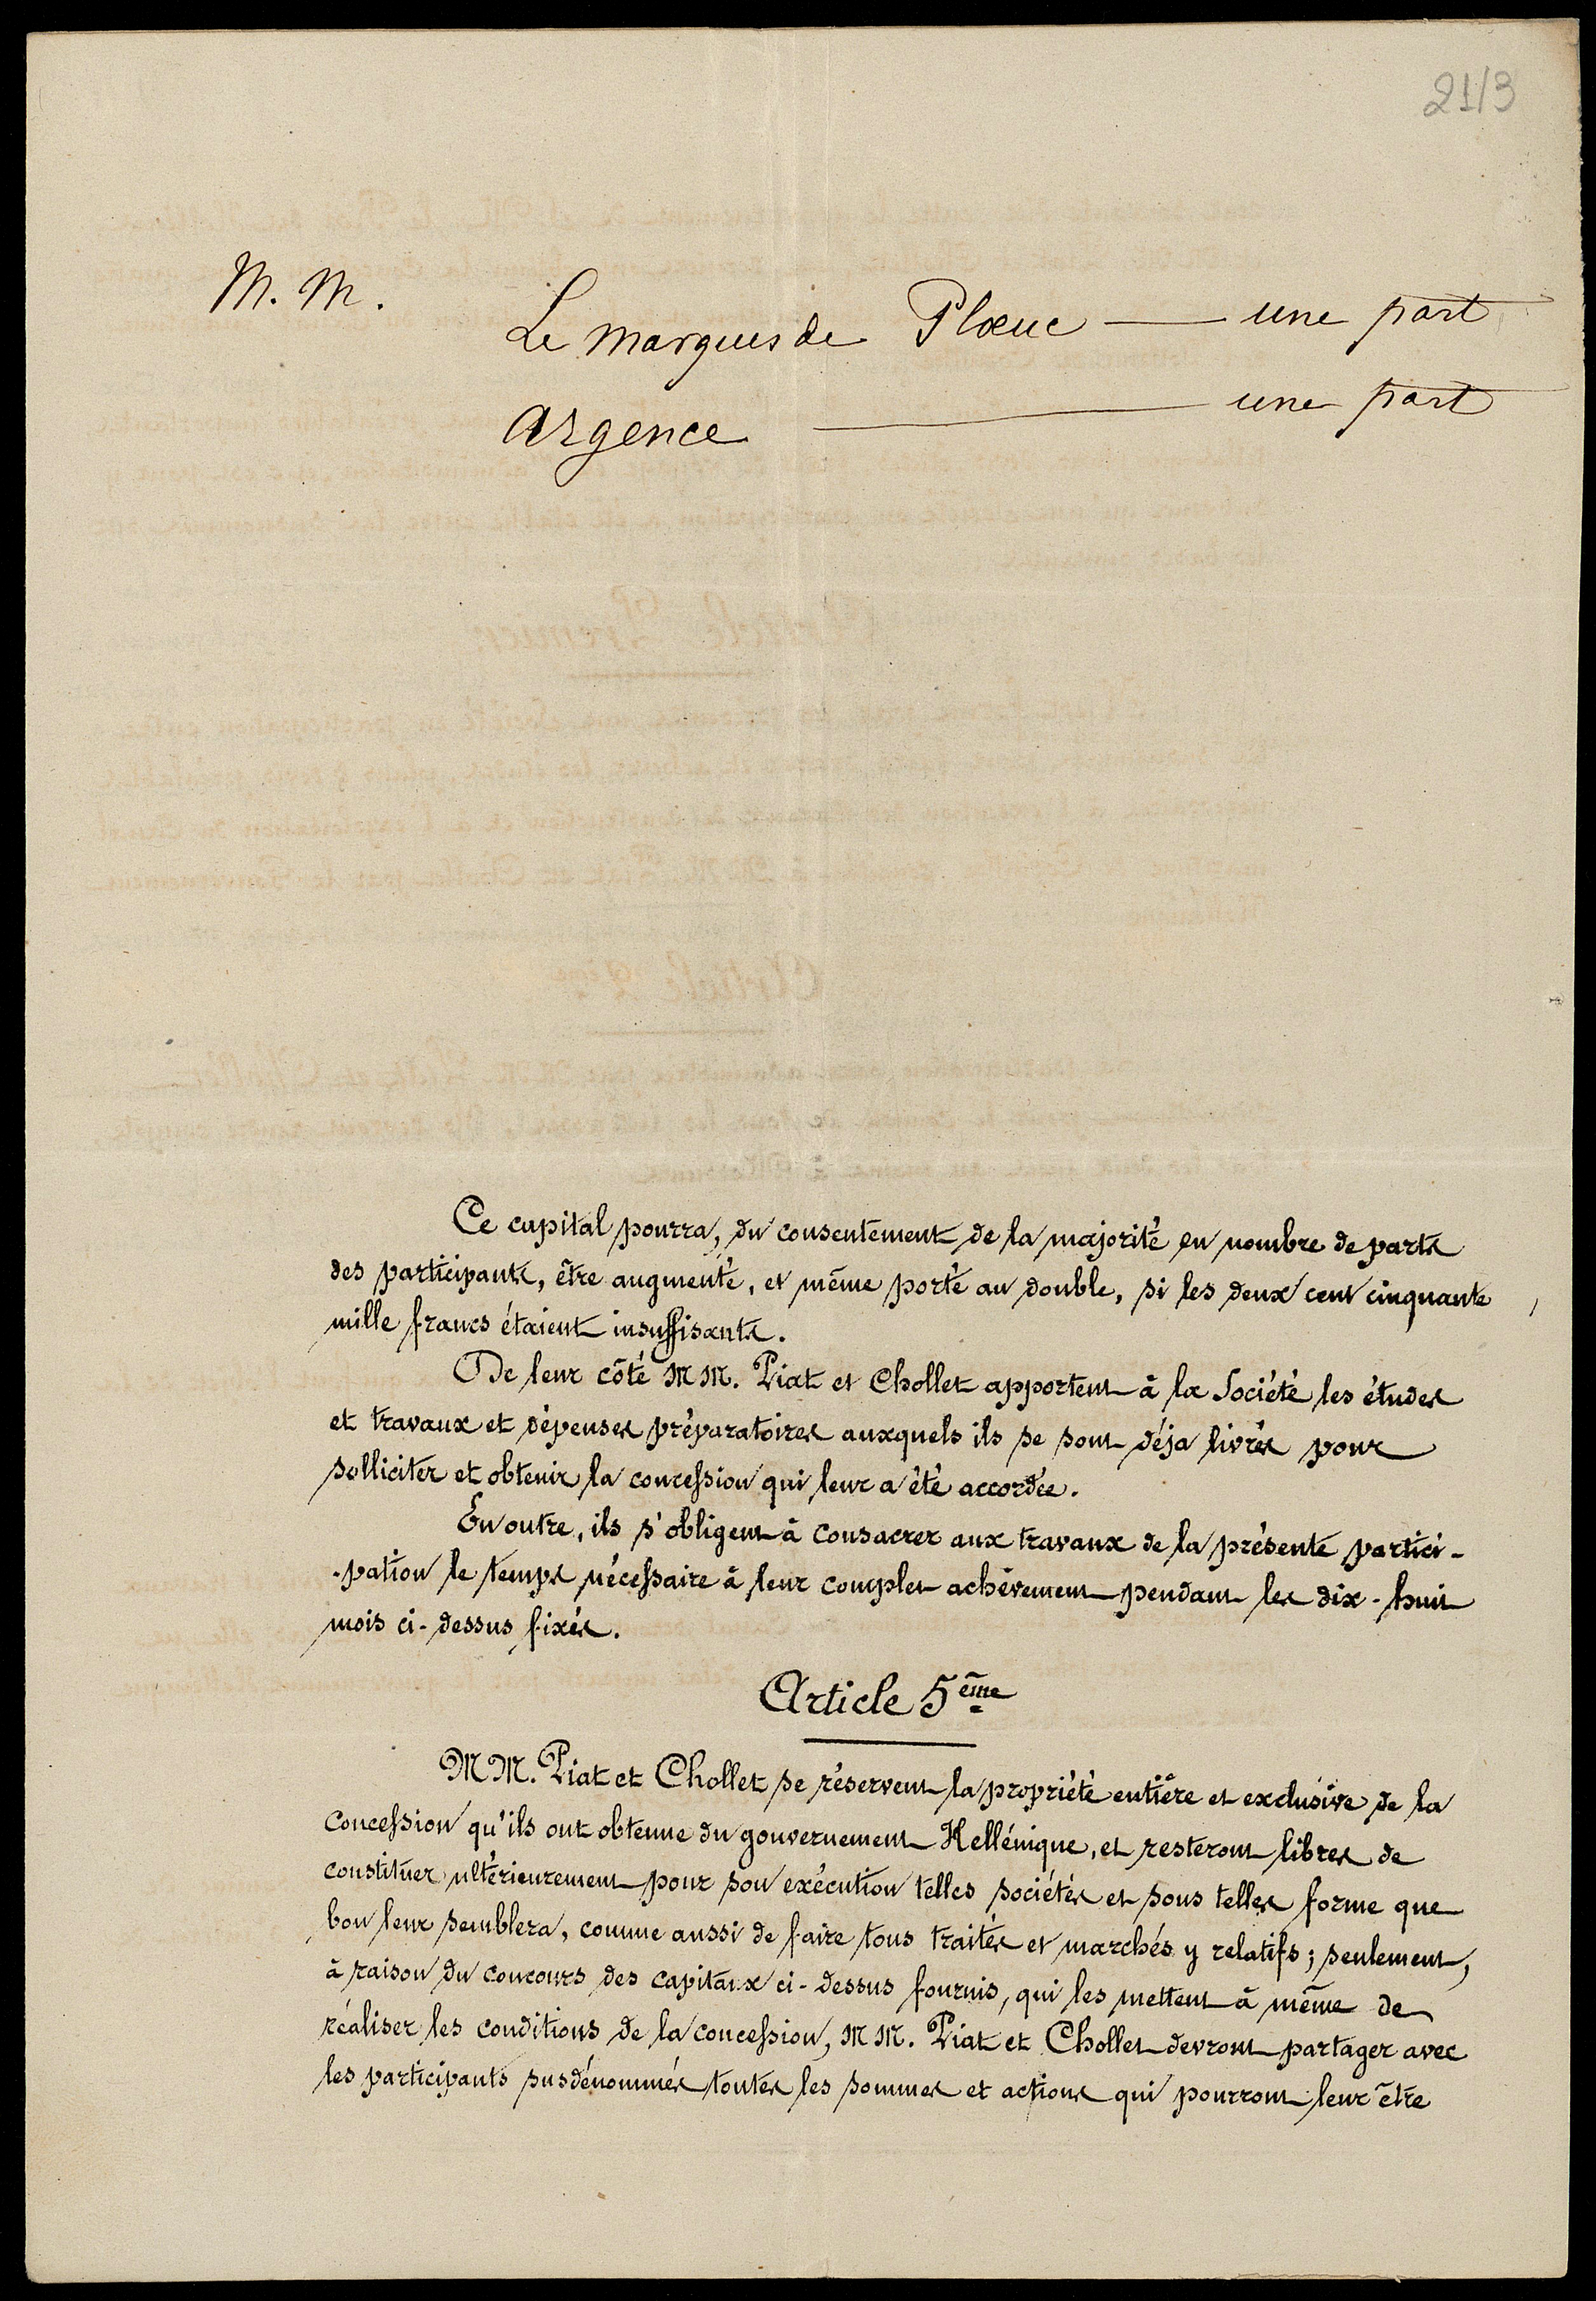 21/3
M. M.
Le Marquis de Ploeuc — une part
Argence — une part
Ce capital pourra, du consentement de la majorité en nombre de parts
des participants, être augmenté, et même porté au double, si les deux cent cinquante
mille francs étaient insuffisants.
De leur côté MM. Piat et Chollet apportent à la Société les études
et travaux et dépenses préparatoires auxquels ils se sont déja livrés pour
solliciter et obtenir la concession qui leur a été accordée.
En outre, ils s'obligent à consacrer aux travaux de la présente partici-
-pation le temps nécessaire à leur complet achèvement pendant les dix-huit
mois ci-dessus fixés.
Article 5ème
MM. Piat et Chollet se réservent la propriété entière et exclusive de la
concession qu'ils ont obtenue du gouvernement Hellénique, et resteront libres de
constituer ultérieurement pour son exécution telles sociétés et sous telles forme que
bon leur semblera, comme aussi de faire tous traités et marchés y relatifs; seulement,
à raison du concours des capitaux ci-dessus fournis, qui les mettent à même de
réaliser les conditions de la concession, MM. Piat et Chollet devront partager avec
les participants susdénommés toutes les sommes et actions qui pourront leur être